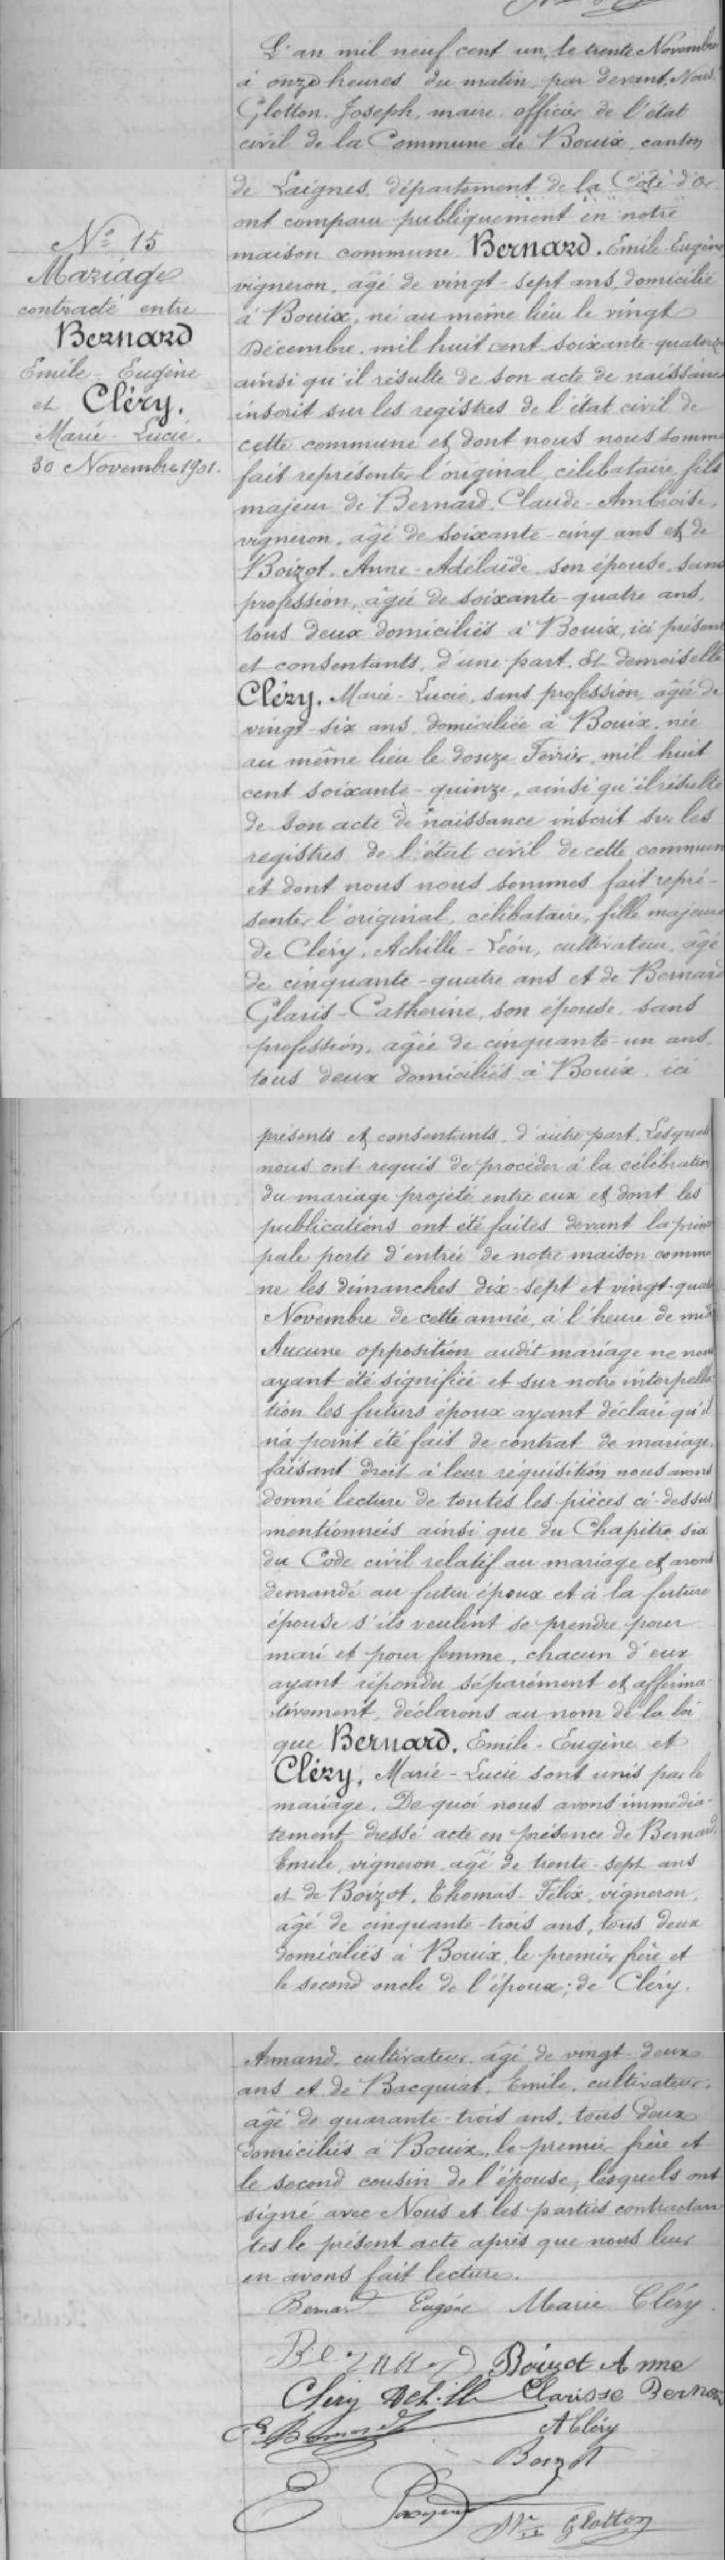 L'an mil neuf cent un, le trente Novembre
à onze heures du matin, par devant, Nous
Glotton, Joseph, maire officier de l'état
civil de la Commune de Bouix, canton
de Laignes, département de la Côte d'Or
ont comparu publiquement en notre
maison commune Bernard, Emile-Eugène
vigneron, âgé de vingt-sept ans, domicilié
à Bouix, né au même lieu le vingt
Décembre, mil huit cent soixante-quatorze
ainsi qu'il résulte de son acte de naissance
inscrit sur les registres de l'état civil de
cette commune et dont nous nous somme
fait représenter l'original, célibataire, fils
majeur de Bernard, Claude-Ambroise,
vigneron, âgé de soixante-cinq ans et de
Boizot, Anne-Adélaïde, son épouse, sans
profession, âgée de soixante-quatre ans,
tous deux domiciliés à Bouix, ici présents
et consentants, d'une part. Et demoiselle
Cléry, Marie-Lucie, sans profession, âgée de
vingt-six ans, domiciliée à Bouix, née
au même lieu le douze Février, mil huit
cent soixante-quinze, ainsi qu'il résulte
de son acte de naissance inscrit sur les
registres de l'état civil de cette commun
et dont nous nous sommes fait repré-
senter l'original, célibataire, fille majeure
de Cléry, Achille-Léon, cultivateur, âgé
de cinquante-quatre ans et de Bernard
Glaris-Catherine, son épouse, sans
profession, âgée de cinquante-un ans,
tous deux domiciliés à Bouix, ici
N° 15
Mariage
contracté entre
Bernard
Emile-Eugène
et Cléry,
Marie-Lucie.
30 Novembre 1901.
présents et consentants, d'autre part. Lesquels
nous ont requis de procéder à la célébration
du mariage projeté entre eux et dont les
publications ont été faites devant la princi
pale porte d'entrée de notre maison commu
ne les dimanches dix-sept et vingt-quatre
Novembre de cette année, à l'heure de midi
Aucune opposition audit mariage ne nous
ayant été signifiée et sur notre interpella
tion les futurs époux ayant déclaré qu'il
n'a point été fait de contrat de mariage,
faisant droit à leur réquisition nous avons
donné lecture de toutes les pièces ci-dessus
mentionnées ainsi que du Chapitre six
du Code civil relatif au mariage et avons
demandé au futur époux et à la future
épouse s'ils veulent se prendre pour
mari et pour femme, chacun d'eux
ayant répondu séparément et affirma
tivement, déclarons au nom de la loi
que Bernard, Emile-Eugène et
Cléry, Marie-Lucie sont unis par le
mariage. De quoi nous avons immédia-
tement dressé acte en présence de Bernard,
Emile, vigneron, âgé de trente-sept ans
et de Boizot, Thomas-Félix, vigneron,
âgé de cinquante-trois ans, tous deux
domiciliés à Bouix, le premier frère et
le second oncle de l'époux; de Cléry,
Armand, cultivateur, âgé de vingt-deux
ans et de Bacquiat, Emile, cultivateur,
âgé de quarante-trois ans, tous deux
domiciliés à Bouix, le premier frère et
le second cousin de l'épouse, lesquels ont
signé avec Nous et les parties contractan
tes le présent acte après que nous leur
en avons fait lecture.
Bernard Eugène Marie Cléry
Bernard Boizot Anne
Cléry Achille Clarisse Bernard
E Bernard A Cléry
Boizot
E
Jh Glotton